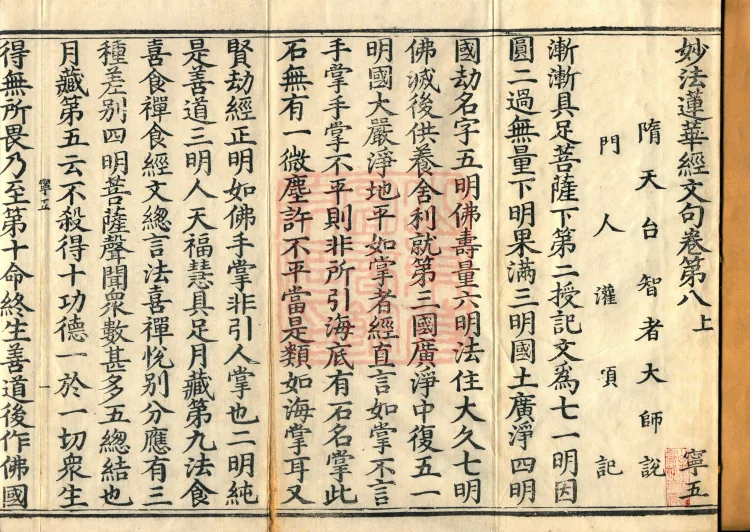 妙法蓮華經文句卷第八上 寧五
隋天台智者大師說
門人灌頂記
漸漸具足菩薩下第二授記文爲七一明因
圓二過無量下明果滿三明國土廣淨四明
國劫名字五明佛壽量六明法住大久七明
佛滅後供養舍利就第三國廣淨中復五一
明國大嚴淨地平如掌者經直言如掌不言
手掌手掌不平則非所引海底有石名掌此
石無有一微塵許不平當是類如海掌耳又
賢劫經正明如佛手掌非引人掌也二明純
是善道三明人天福慧具足月藏第九法食
喜食禪食經文總言法喜禪悅別分應有三
種差別四明菩薩聲聞衆數甚多五總結也
月藏第五云不殺得十功德一於一切衆生
寧五 一
得無所畏乃至第十命終生善道後作佛國